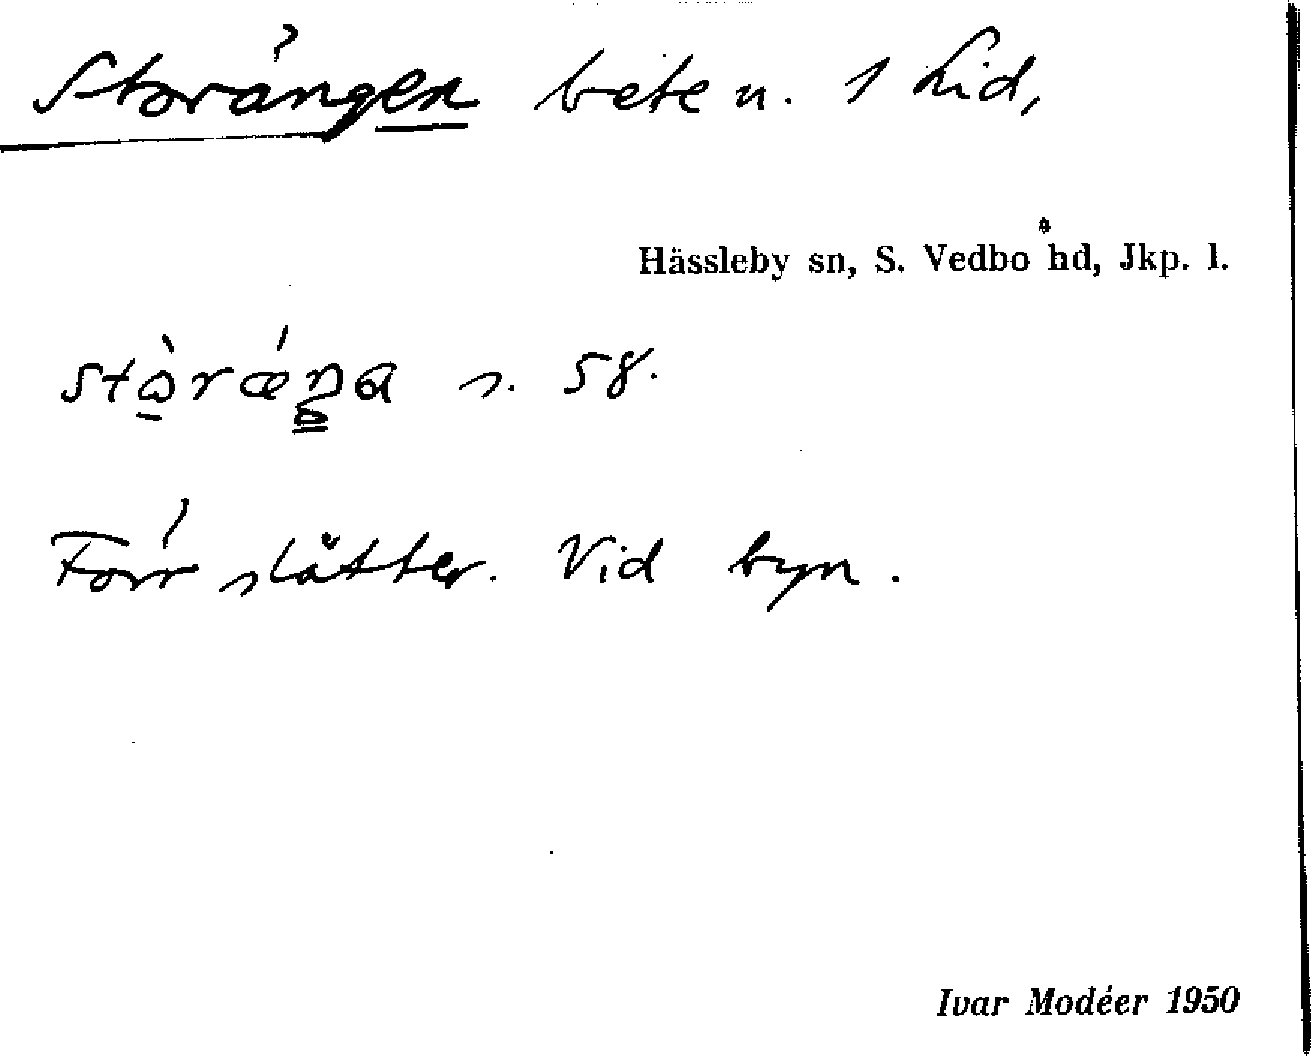 Storängen bete n. 1 Lid,
Hässleby sn, S. Vedbo hd, Jkp. l.
stòrǽŋa s. 58.
Förr slåtter. Vid byn.
Ivar Modéer 1950